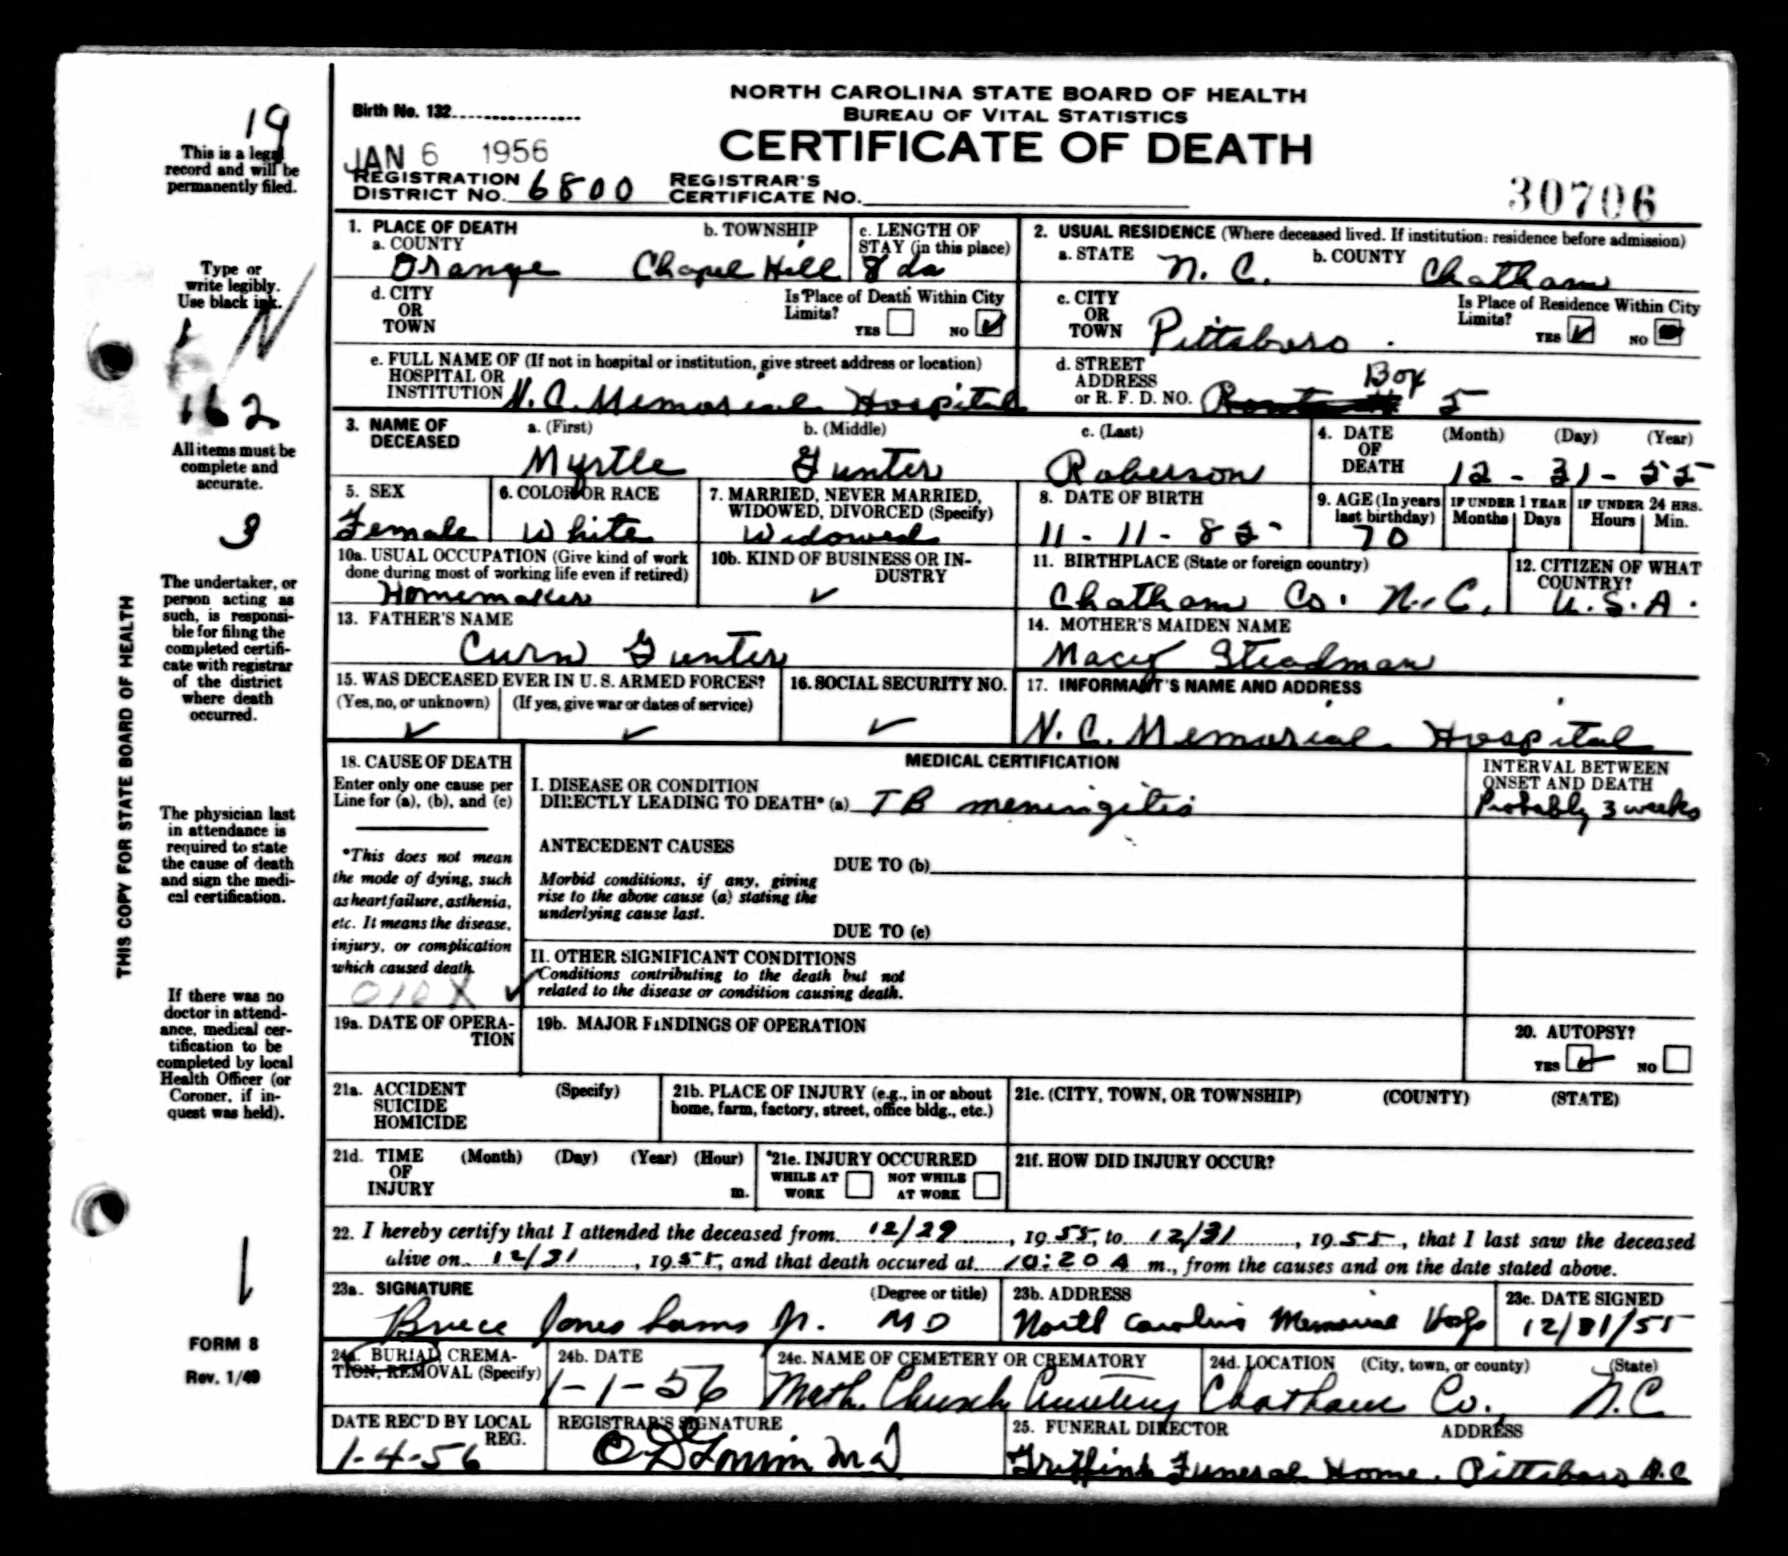 NORTH CAROLINA STATE BOARD OF HEALTH
BUREAU OF VITAL STATISTICS
CERTIFICATE OF DEATH
Birth No. 132
JAN 6 1956
REGISTRATION DISTRICT NO. 6800 REGISTRAR'S CERTIFICATE NO.
30706
19
This is a legal
record and will be
permanently filed.
Type or
write legibly.
Use black ink.
N
162
All items must be
complete and
accurate.
3
The undertaker, or
person acting as
such, is responsi-
ble for filing the
completed certifi-
cate with registrar
of the district
where death
occurred.
THIS COPY FOR STATE BOARD OF HEALTH
The physician last
in attendance is
required to state
the cause of death
and sign the medi-
cal certification.
If there was no
doctor in attend-
ance, medical cer-
tification to be
completed by local
Health Officer (or
Coroner, if in-
quest was held).
FORM 8
Rev. 1/49
1. PLACE OF DEATH
a. COUNTY Orange
b. TOWNSHIP Chapel Hill
c. LENGTH OF STAY (in this place) 8 da
2. USUAL RESIDENCE (Where deceased lived. If institution: residence before admission)
a. STATE N. C.
b. COUNTY Chatham
d. CITY OR TOWN
Is Place of Death Within City Limits? YES NO ✓
c. CITY OR TOWN Pittsboro.
Is Place of Residence Within City Limits? YES ✓ NO
e. FULL NAME OF (If not in hospital or institution, give street address or location)
HOSPITAL OR INSTITUTION N. C. Memorial Hospital
d. STREET ADDRESS or R. F. D. NO. Box 5
3. NAME OF DECEASED
a. (First) Myrtle
b. (Middle) Gunter
c. (Last) Roberson
4. DATE OF DEATH (Month) (Day) (Year) 12-31-55
5. SEX Female
6. COLOR OR RACE White
7. MARRIED, NEVER MARRIED, WIDOWED, DIVORCED (Specify) Widowed
8. DATE OF BIRTH 11-11-85
9. AGE (In years last birthday) 70
IF UNDER 1 YEAR Months Days
IF UNDER 24 HRS. Hours Min.
10a. USUAL OCCUPATION (Give kind of work done during most of working life even if retired) Homemaker
10b. KIND OF BUSINESS OR INDUSTRY ✓
11. BIRTHPLACE (State or foreign country) Chatham Co. N.C.
12. CITIZEN OF WHAT COUNTRY? U.S.A.
13. FATHER'S NAME Curn Gunter
14. MOTHER'S MAIDEN NAME Macy Steadman
15. WAS DECEASED EVER IN U. S. ARMED FORCES?
(Yes, no, or unknown) ✓ (If yes, give war or dates of service) ✓
16. SOCIAL SECURITY NO. ✓
17. INFORMANT'S NAME AND ADDRESS
N. C. Memorial Hospital
18. CAUSE OF DEATH
Enter only one cause per
Line for (a), (b), and (c)
*This does not mean
the mode of dying, such
as heart failure, asthenia,
etc. It means the disease,
injury, or complication
which caused death.
010X ✓
MEDICAL CERTIFICATION
I. DISEASE OR CONDITION
DIRECTLY LEADING TO DEATH* (a) TB meningitis
INTERVAL BETWEEN ONSET AND DEATH
Probably 3 weeks
ANTECEDENT CAUSES
DUE TO (b)
Morbid conditions, if any, giving
rise to the above cause (a) stating the
underlying cause last.
DUE TO (c)
II. OTHER SIGNIFICANT CONDITIONS
Conditions contributing to the death but not
related to the disease or condition causing death.
19a. DATE OF OPERATION
19b. MAJOR FINDINGS OF OPERATION
20. AUTOPSY?
YES ✓ NO
21a. ACCIDENT SUICIDE HOMICIDE (Specify)
21b. PLACE OF INJURY (e.g., in or about home, farm, factory, street, office bldg., etc.)
21c. (CITY, TOWN, OR TOWNSHIP) (COUNTY) (STATE)
21d. TIME OF INJURY (Month) (Day) (Year) (Hour) m.
21e. INJURY OCCURRED
WHILE AT WORK NOT WHILE AT WORK
21f. HOW DID INJURY OCCUR?
22. I hereby certify that I attended the deceased from 12/29, 1955, to 12/31, 1955, that I last saw the deceased
alive on 12/31, 1955, and that death occured at 10:20 A m., from the causes and on the date stated above.
23a. SIGNATURE (Degree or title)
Bruce Jones Jr. MD
23b. ADDRESS
North Carolina Memorial Hosp
23c. DATE SIGNED
12/31/55
24a. BURIAL, CREMATION, REMOVAL (Specify)
24b. DATE 1-1-56
24c. NAME OF CEMETERY OR CREMATORY
Meth. Church Cemetery
24d. LOCATION (City, town, or county) (State)
Chatham Co., N.C.
DATE REC'D BY LOCAL REG.
1-4-56
REGISTRAR'S SIGNATURE
25. FUNERAL DIRECTOR ADDRESS
Griffin's Funeral Home. Pittsboro N.C